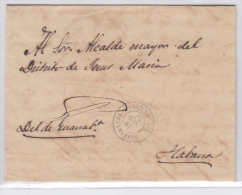 Al Sor Alcalde mayor del
Distrito de Jesus Maria
Del de Guanaba.
Habana